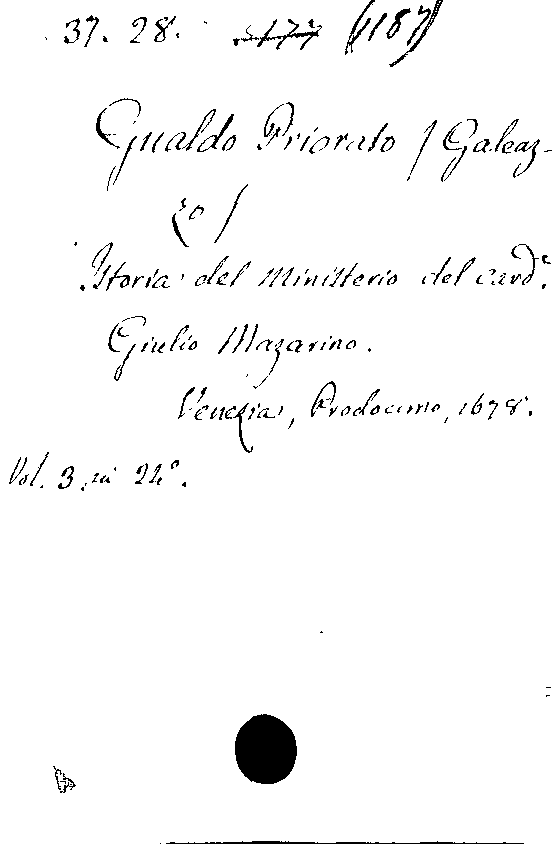 37. 28. 177 (1187)
Gualdo Priorato / Galeaz-
zo /
Istoria del Ministerio del Card.e
Giulio Mazarino.
Venezia, Prodocimo, 1678.
Vol. 3 in 24°.